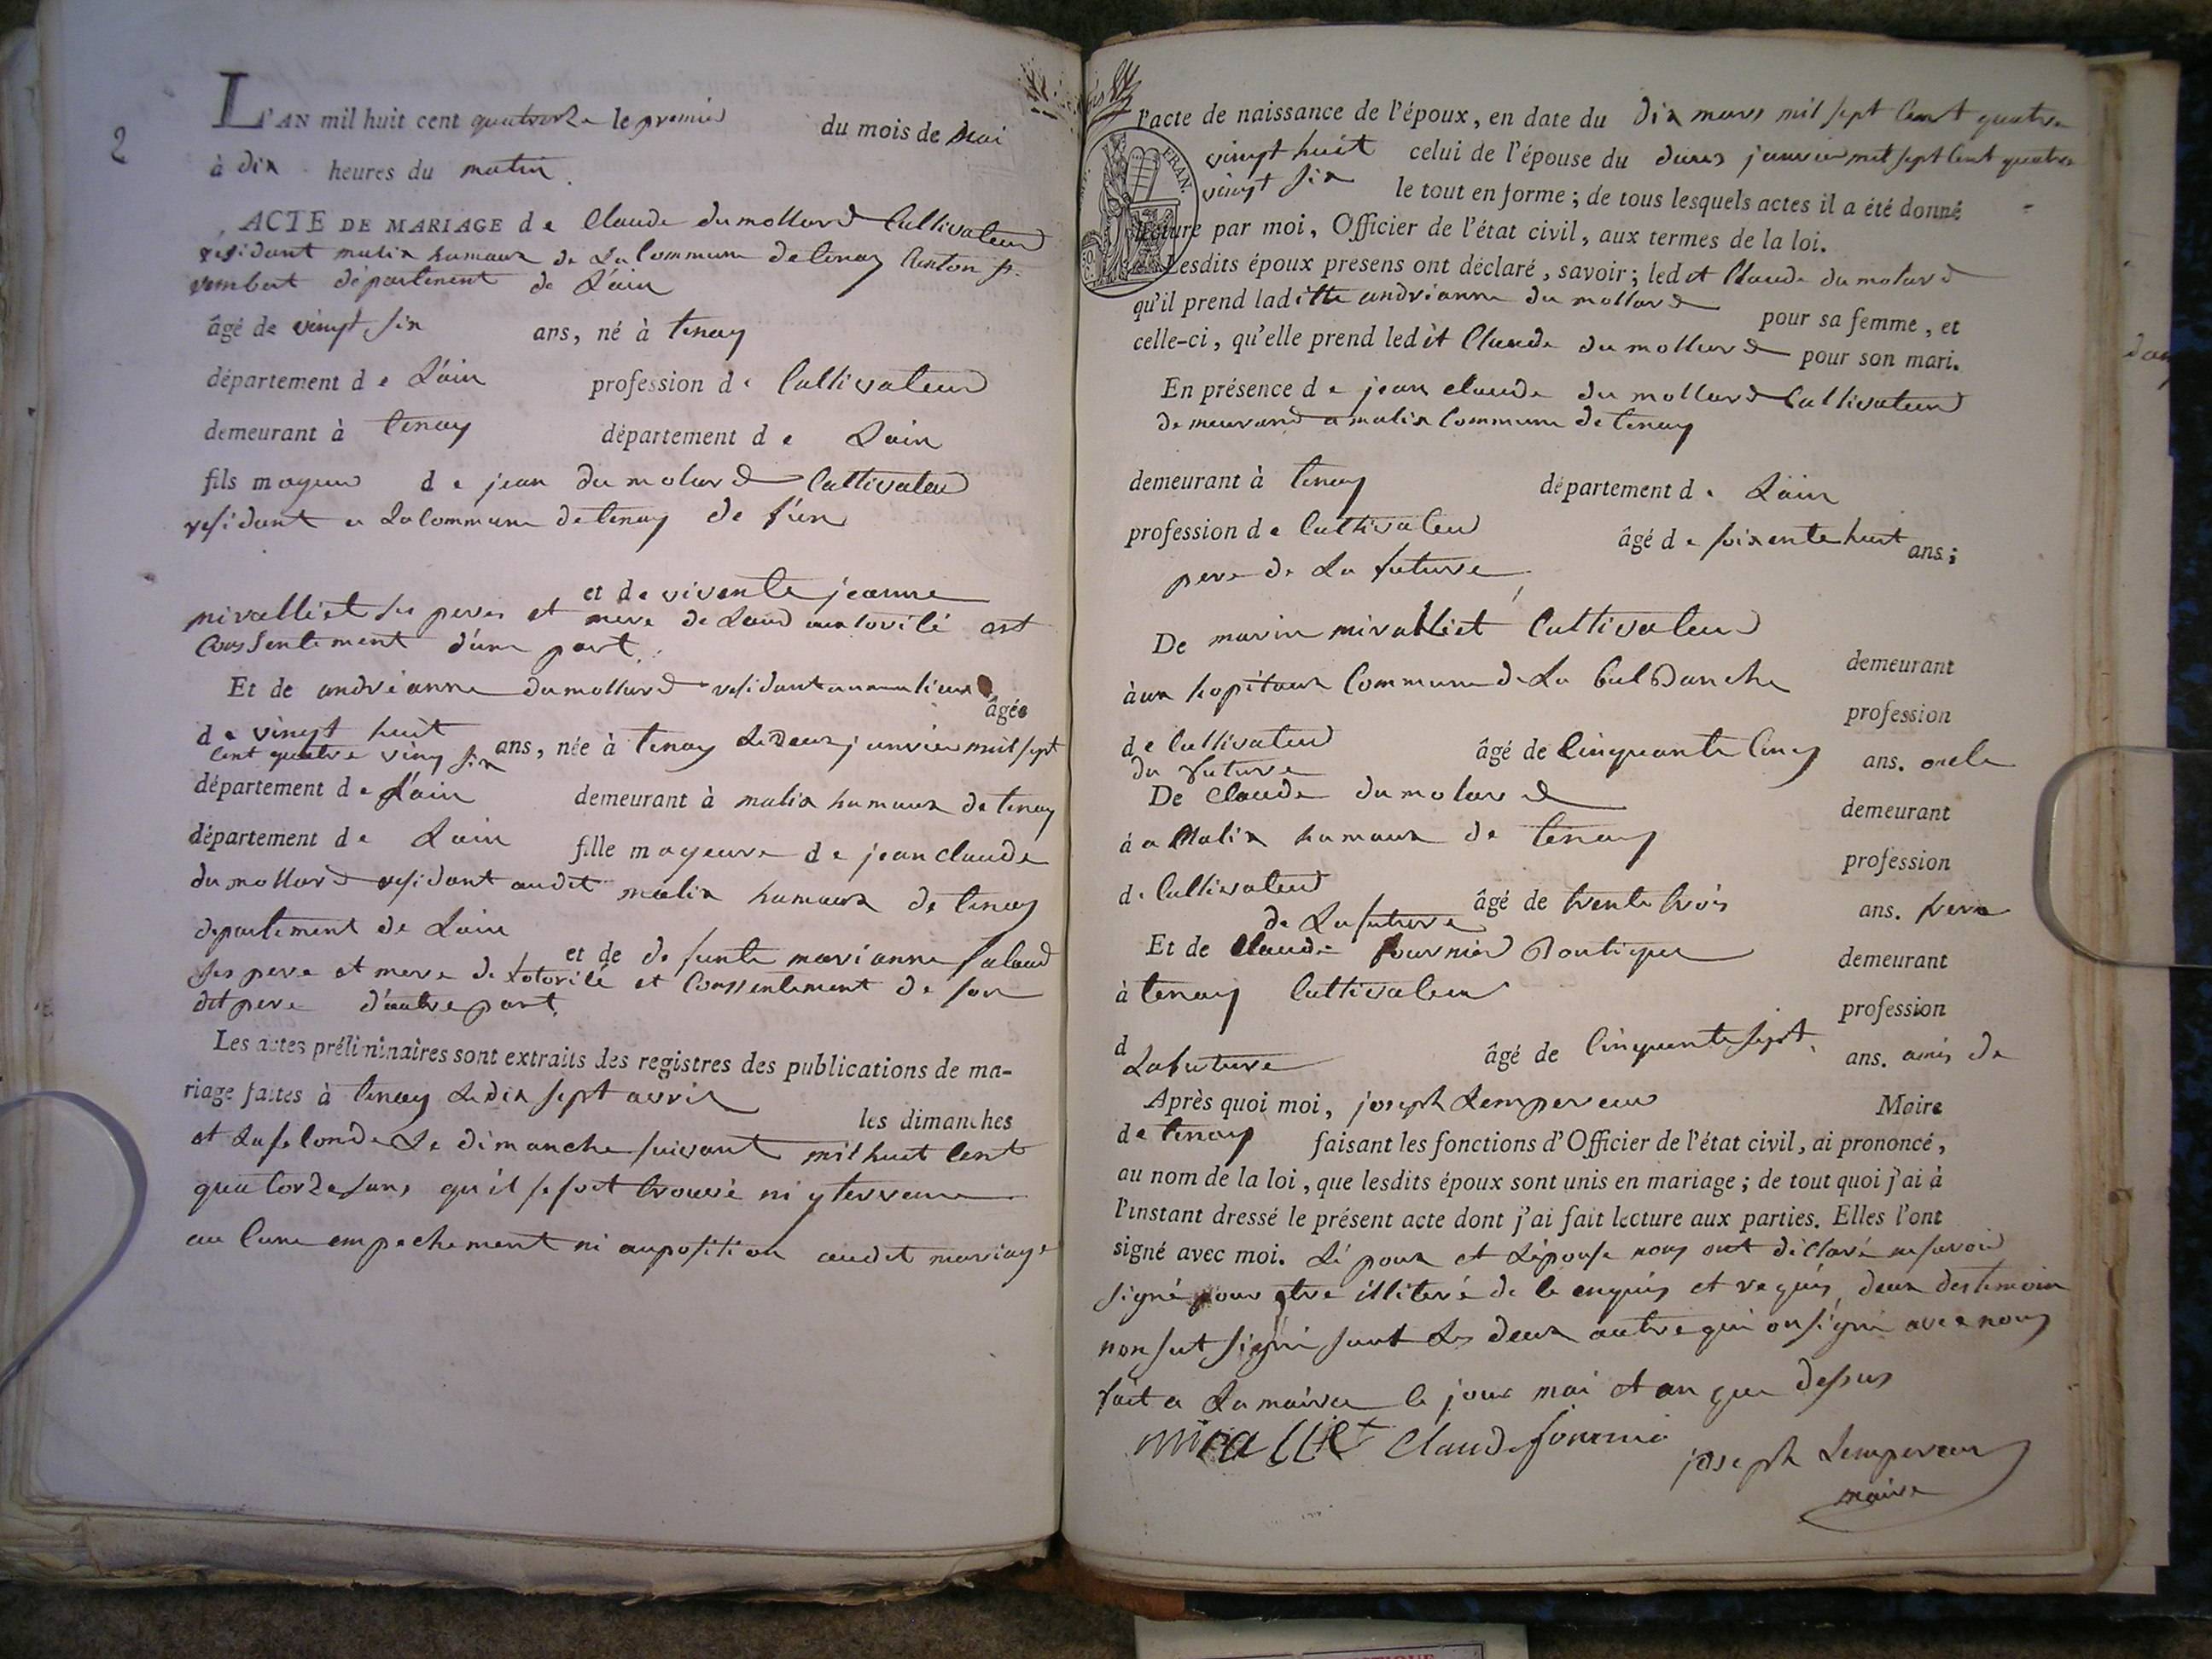 2
L'AN mil huit cent quatorze le premier du mois de mai
à dix heures du matin.
ACTE DE MARIAGE de Claude dumollard Cultivateur
residant malix hamaux de La Commune de tenay Canton st.
rembert département de L'ain
âgé de vingt six ans, né à tenay
département de L'ain profession de Cultivateur
demeurant à tenay département de Lain
fils mageur de jean dumolard Cultivateur
residant a La Commune de tenay de L'ain
et de vivente jeanne
miralliet ses peres et mere de Laud autorité est
Conssentement d'une part.
Et de andrianne dumollard residant
âgée
de vingt huit ans, née à tenay Le deux janvier mil sept
Cent quatre ving six
département de L'ain demeurant à malix hamaux de tenay
département de Lain fille mageure de jean claude
dumollard residant audit malix hamaux de tenay
departement de Lain
et de defunte marianne salaud
ses pere et mere de Lotorité et Conssentement de son
dit pere d'autre part.
Les actes préliminaires sont extraits des registres des publications de ma-
riage faites à tenay Le dix sept avril
les dimanches
et La seconde Le dimanche suivant mil huit Cent
quatorze sans qu'il se soit trouvé ni
au Cune empechement ni auposition audit mariage
l'acte de naissance de l'époux, en date du dix mars mil sept Cent quatre
vingt huit celui de l'épouse du deux janvier mil sept Cent quatre
vingt six le tout en forme; de tous lesquels actes il a été donné
FRAN.
lecture par moi, Officier de l'état civil, aux termes de la loi.
Lesdits époux présens ont déclaré, savoir; ledit Claude dumolard
qu'il prend laditte andrianne dumollard pour sa femme, et
celle-ci, qu'elle prend ledit Claude dumollard pour son mari.
En présence de jean claude dumollard Cultivateur
demeurand a malix Commune de tenay
demeurant à tenay département de L'ain
profession de Cultivateur âgé de soixente huit ans;
pere de La future
De marin miralliet Cultivateur
demeurant
à aux hopitaux Commune de La bulbanche
profession
de Cultivateur âgé de Cinquante Cinq ans. oncle
du future
De Claude dumolard
demeurant
à a Malix hamaux de tenay
profession
de Cultivateur âgé de trente trois ans. frere
de La future
Et de Claude fournier Boutique
demeurant
à tenay Cultivateur
profession
d âgé de Cinquante sept. ans. amis de
La future
Après quoi moi, joseph Lempereur Maire
de tenay faisant les fonctions d'Officier de l'état civil, ai prononcé,
au nom de la loi, que lesdits époux sont unis en mariage; de tout quoi j'ai à
l'instant dressé le présent acte dont j'ai fait lecture aux parties. Elles l'ont
signé avec moi. Lépoux et Lépouse nous ont déclaré ne savoir
signé pour etre illiteré de le enquis et requis, deux des temoin
non sut signé sont Les deux autre qui on signé avec nous
fait a La mairie le jour moi et an que dessus
miralliet Claude fournié joseph Lempereur
maire